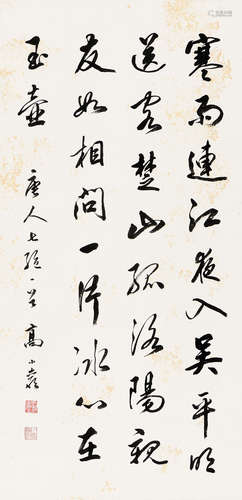 寒雨連江夜入吳平明
送客楚山孤洛陽親
友如相問一片冰心在
玉壺
唐人七絕一首 高小巖